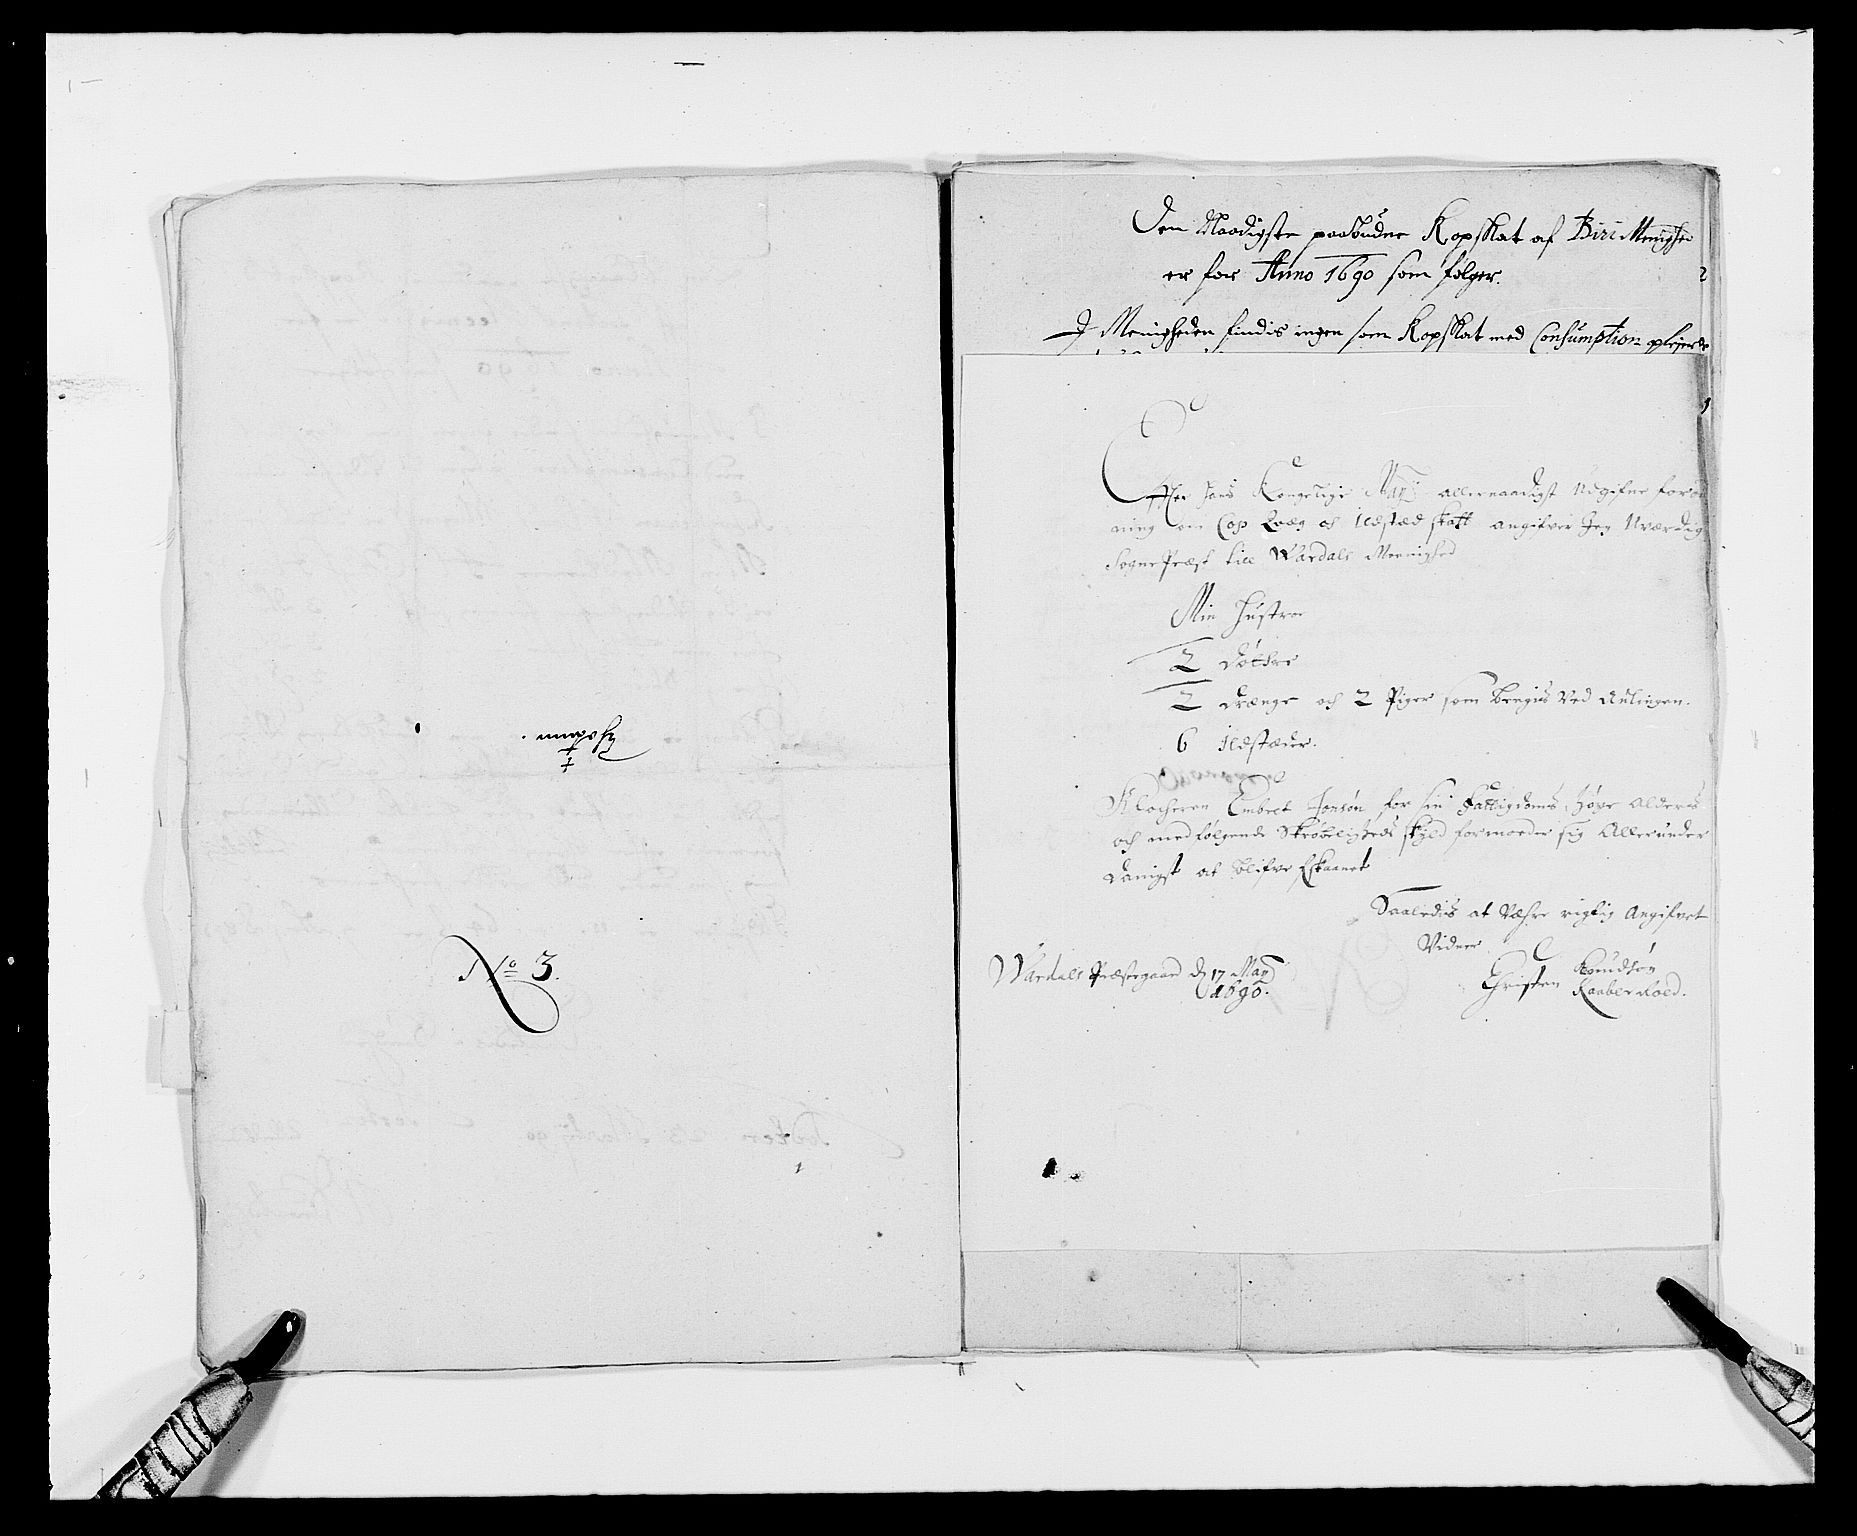 No 3.
Den Naadigste paabudne Kopskat af Biri Menighed
er for Anno 1690 som følger.
I Menigheden findis ingen som Kopskat med Consumption plejer
Effter Hans Kongelige May: allernaadigst Udgifne foror
ning om Cop Qvæg och Ildsted skatt angifver Jeg Uværdig
SognePræst till Wardals Meenighed
Min Hustroe
2 Døttre
2 Drænge och 2 Piger som brugis Ved Aulingen.
6 Ildstæder.
Klocheren Embret Jonsøn for sin Fattigdoms, Høye Alders
och medfølgende Skrøbeligheds skyld formoeder sig Allerunder
danigst at blifve Forskaanet
Saaledis at Wæhre rigtig Angifvet
Vidner
Wardals Præstegaard d 17 May
1690.
Christen Knudsøn